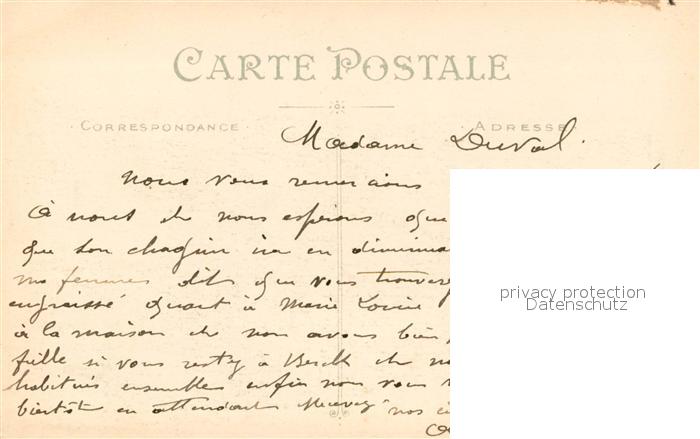 CARTE POSTALE
CORRESPONDANCE
ADRESSE
Madame Duval
nous vous remercions
nous et nous espérons que
que son chagrin ira en diminua
ma femmes dit que vous trouverez
engraissé quant à Marie Louise
à la maison et nous avons bien
fille si vous restez à Berck et
habitués ensembles enfin nous vous
bientôt en attendant Recevez nos
privacy protection
Datenschutz